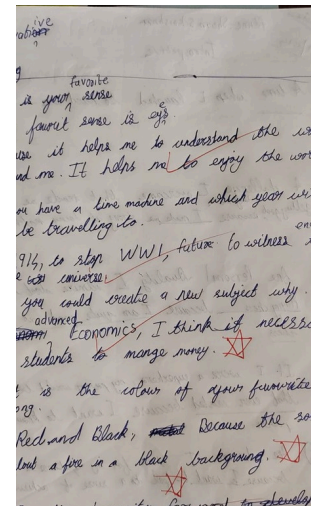 ive
g
favorite
is your sense
favourit sense is eye
use it helps me to understand the w
nd me. It helps me to enjoy the wor
ou have a time machine and which year wi
be travelling to.
914, to stop WW1, future to witness en
e universe.
you could create a new subject why.
advanced
Economics, I think it necess
students to mange money.
t is the colour of your favourite
ong.
Red and Black, Because the so
bout a fire in a black background.